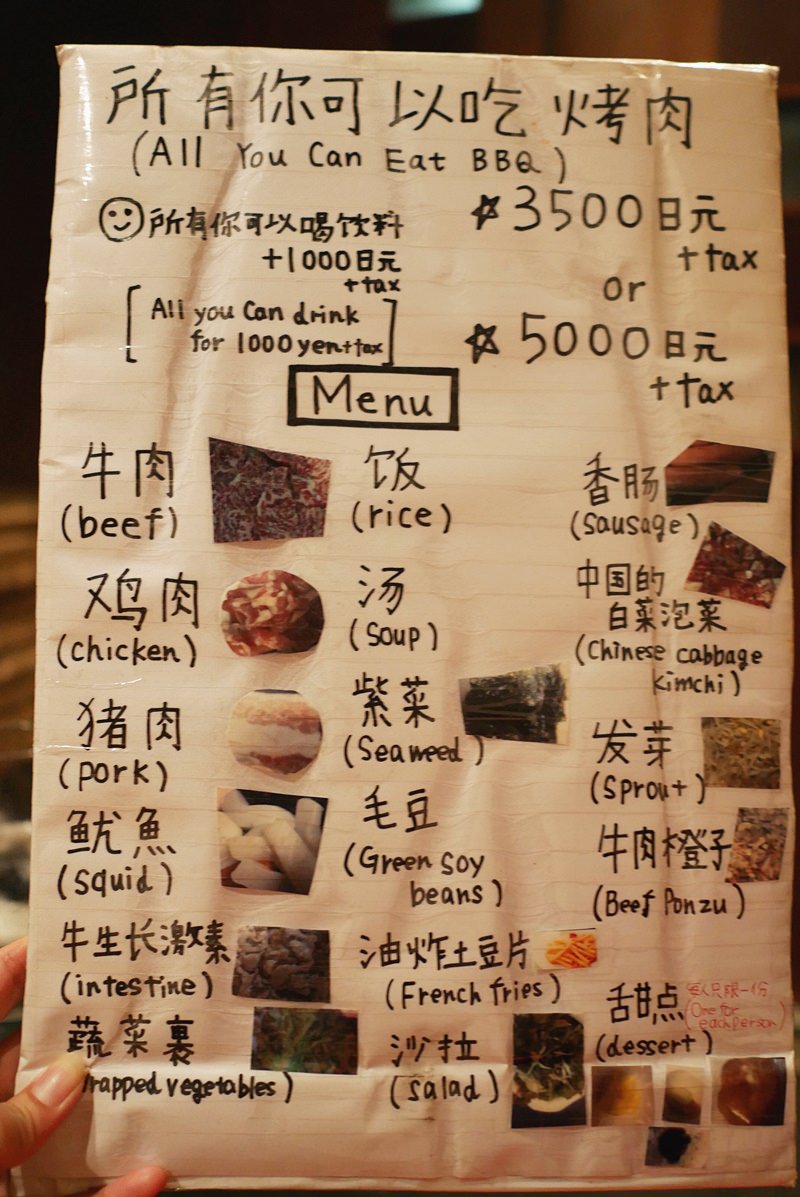 所有你可以吃 烤肉
(All You Can Eat BBQ)
☺所有你可以喝饮料
+1000日元
+tax
[All you Can drink
for 1000yen+tax]
☆3500日元
+tax
or
☆5000日元
+tax
Menu
牛肉
(beef)
鸡肉
(chicken)
猪肉
(pork)
鱿魚
(squid)
牛生长激素
(intestine)
蔬菜裹
rapped vegetables)
饭
(rice)
汤
(Soup)
紫菜
(Seaweed)
毛豆
(Green Soy
beans)
油炸土豆片
(French fries)
沙拉
(salad)
香肠
(sausage)
中国的
白菜泡菜
(Chinese cabbage
kimchi)
发芽
(sprout)
牛肉橙子
(Beef Ponzu)
甜点
(dessert)
每人只限一份
(One for
each person)